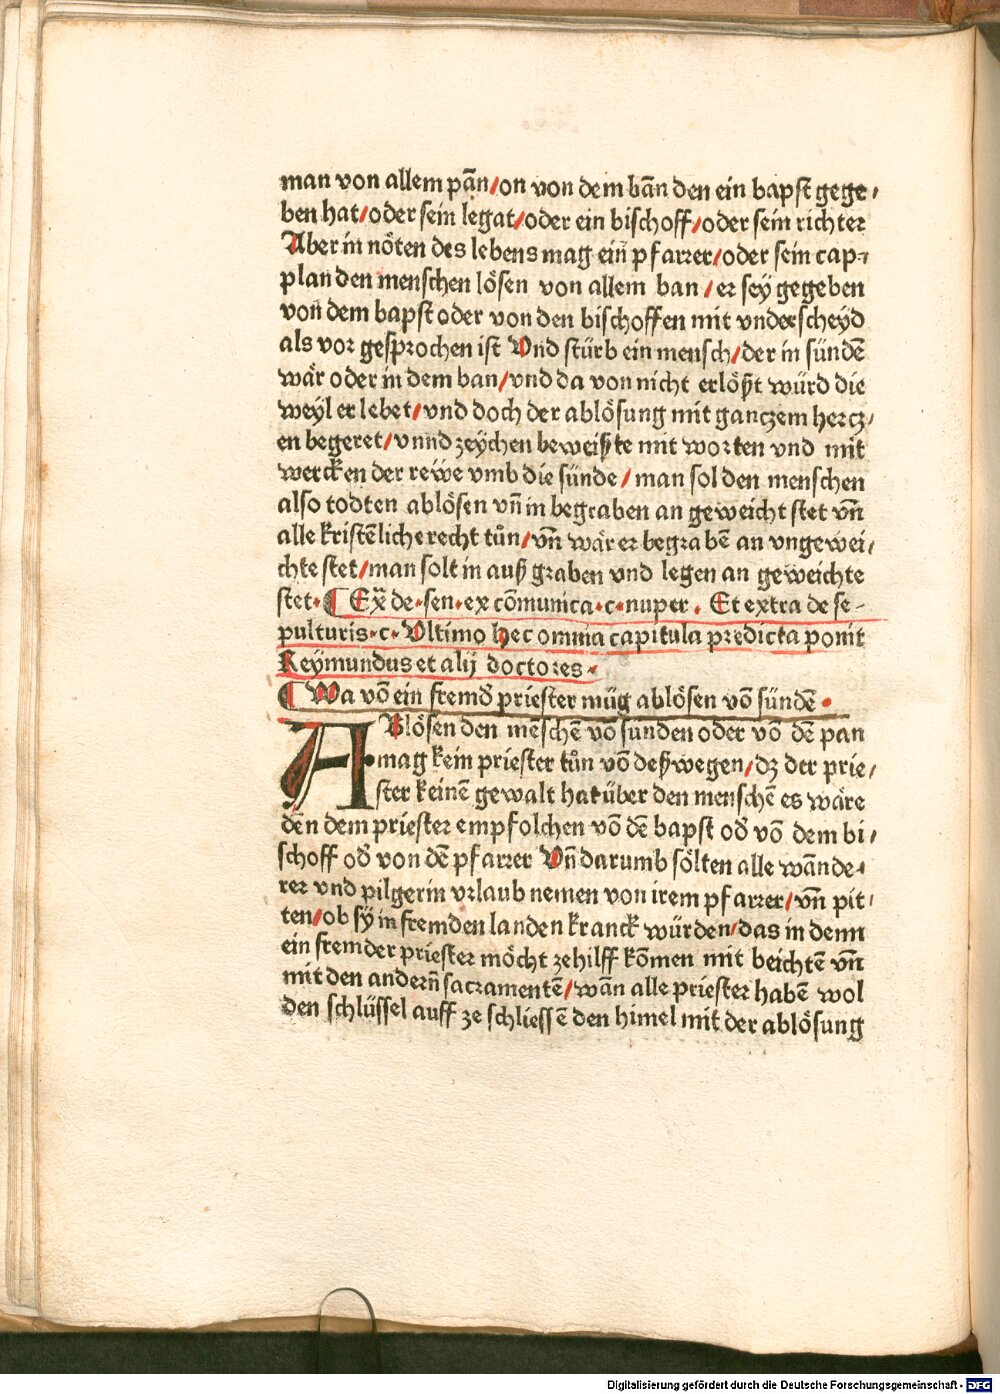 man von allem pān/on von dem bān den ein bapst gege⸗
ben hat/oder sein legat/oder ein bischoff/oder sein richter
Aber in nöten des lebens mag ein pfarrer/oder sein cap⸗
plan den menschen lösen von allem ban/er sey gegeben
von dem bapst oder von den bischoffen mit vnderscheyd
als vor gesprochen ist Vnd stürb ein mensch/der in sündē
wär oder in dem ban/vnd da von nicht erlößt würd die
weyl er lebet/vnd doch der ablösung mit ganczem hercz⸗
en begeret/vnnd zeychen beweißte mit worten vnd mit
wercken der rewe vmb die sünde/man sol den menschen
also todten ablösen vn̄ in begraben an geweicht stet vn̄
alle kristēliche recht tůn/vn̄ wär er begrabē an vngewei⸗
chte stet/man solt in auß graben vnd legen an geweichte
stet. ¶ Ex̄ de.sen.ex cōmunica.c.nuper. Et extra de se⸗
pulturis.c.Vltimo hec omnia capitula predicta ponit
Reymundus et alij doctores.
¶ Wa vō ein fremd̄ priester müg ablösen vō sündē.
ABlösen den mēschē vō sunden oder vō dē pan
mag kein priester tůn vō deßwegen/dz der prie⸗
ster keinē gewalt hat über den menschē es wäre
dēn dem priester empfolchen vō dē bapst od̄ vō dem bi⸗
schoff od̄ von dē pfarrer Vn̄ darumb sölten alle wānde⸗
rer vnd pilgerin vrlaub nemen von irem pfarrer/vn̄ pit⸗
ten/ob sÿ in fremden landen kranck würden/das in denn
ein fremder priester möcht zehilff kōmen mit beichtē vn̄
mit den andern̄ sacramentē/wān alle priester habē wol
den schlüssel auff ze schliessē den himel mit der ablösung
Digitalisierung gefördert durch die Deutsche Forschungsgemeinschaft - DFG